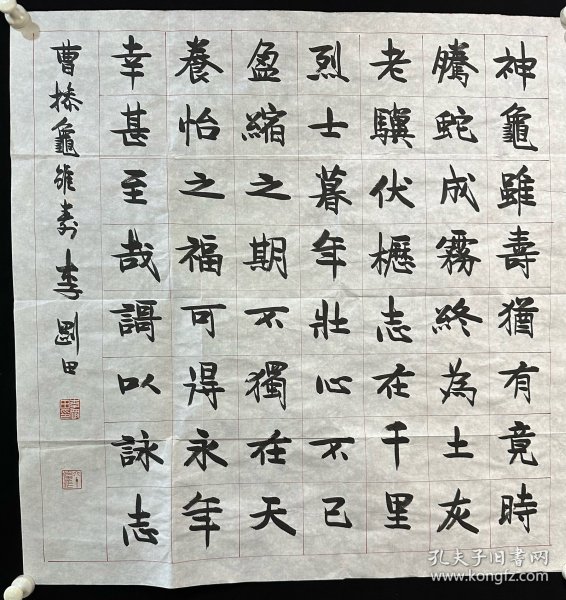 神龜雖壽猶有竟時
騰蛇成霧終為土灰
老驥伏櫪志在千里
烈士暮年壯心不已
盈縮之期不獨在天
養怡之福可得永年
幸甚至哉謌以詠志
曹操龜雖壽 李剛田
孔夫子旧书网
www.kongfz.com